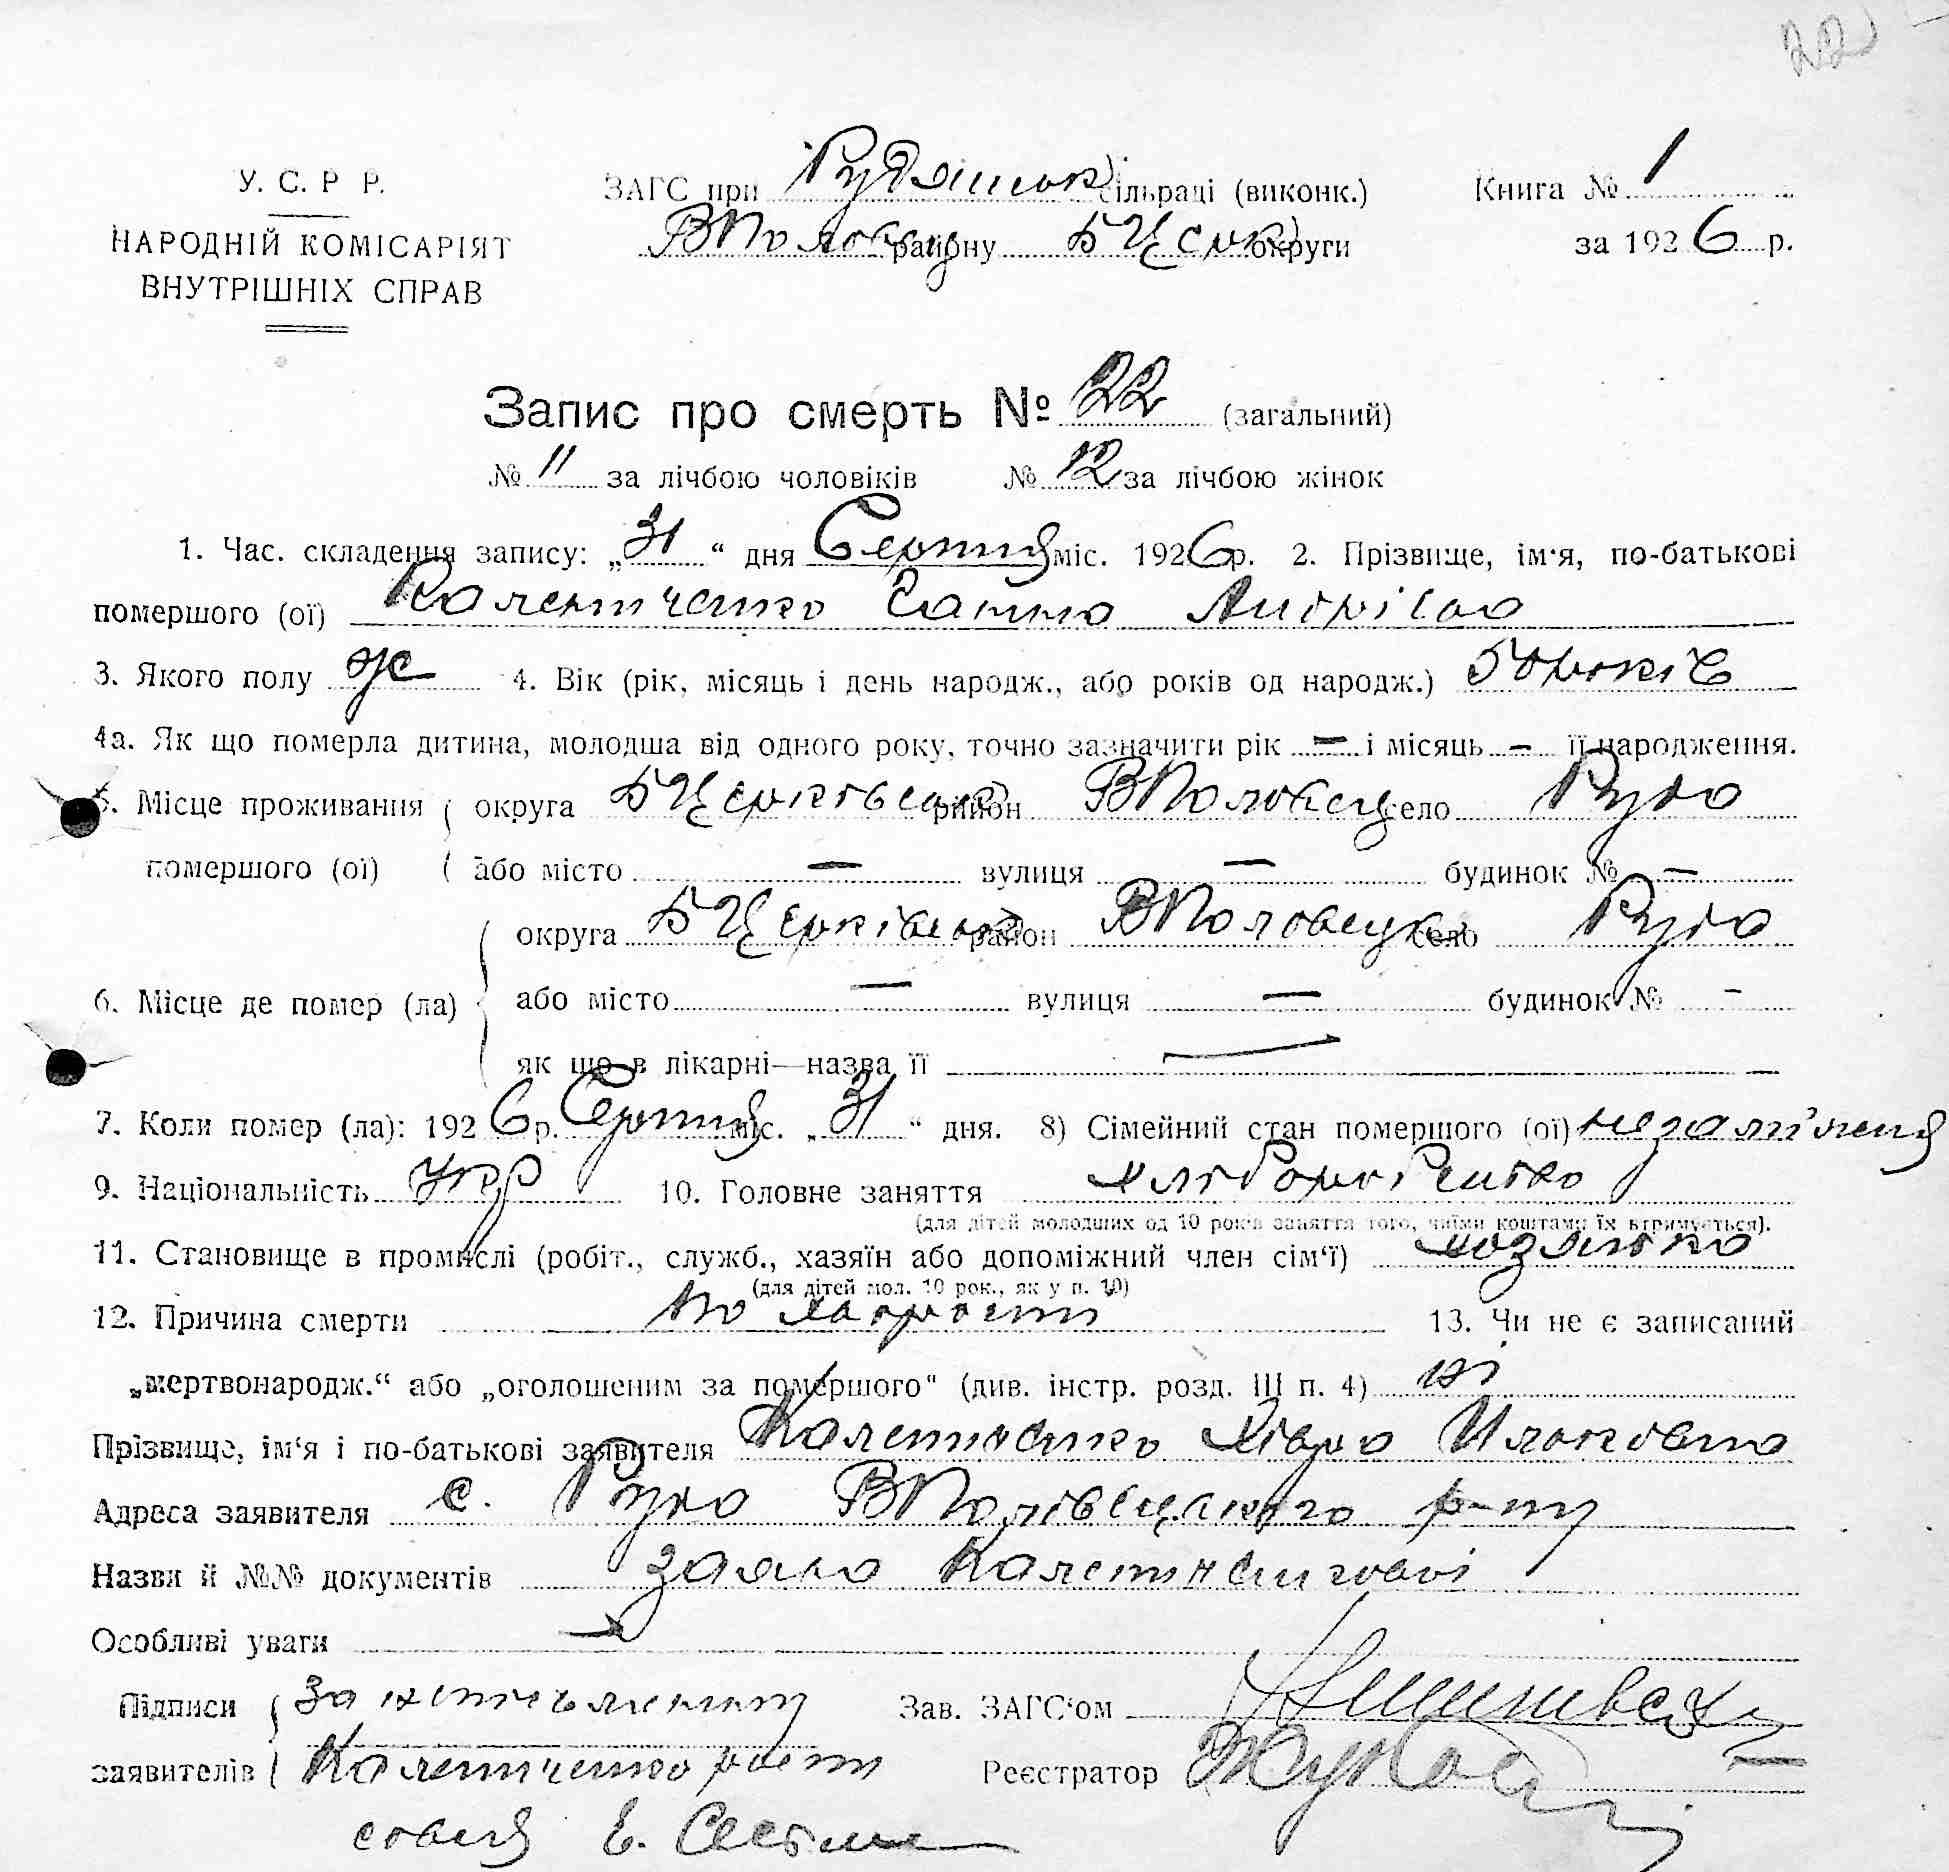 22
У. С. Р Р.
НАРОДНІЙ КОМІСАРІЯТ
ВНУТРІШНІХ СПРАВ
ЗАГС при Рудянськ сільраді (виконк.)
ВПоловец району БЦерк округи
Книга № 1
за 1926 р.
Запис про смерть № 22 (загальний)
№ 11 за лічбою чоловіків № 12 за лічбою жінок
1. Час. складення запису: „31“ дня Серпня міс. 1926 р. 2. Прізвище, ім'я, по-батькові
помершого (ої) Калениченко Ганна Андрівна
3. Якого полу ж 4. Вік (рік, місяць і день народж., або років од народж.) років
4а. Як що померла дитина, молодша від одного року, точно зазначити рік — і місяць — її народження.
5. Місце проживання округа БЦерківськ район ВПоловец село Руда
помершого (ої) або місто — вулиця — будинок № —
округа БЦерківськ район ВПоловецьк село Руда
6. Місце де помер (ла) або місто — вулиця — будинок № -
як що в лікарні—назва її —
7. Коли помер (ла): 1926 р. Серпня міс. „31“ дня. 8) Сімейний стан помершого (ої) незаміжня
9. Національність Укр 10. Головне заняття хліборобство
(для дітей молодших од 10 років заняття того, чиїми коштами їх втримується).
11. Становище в промислі (робіт., служб., хазяїн або допоміжний член сім'ї) хозяйка
(для дітей мол. 10 рок., як у п. 10)
12. Причина смерти по старости 13. Чи не є записаний
„мертвонародж.“ або „оголошеним за помершого“ (див. інстр. розд. III п. 4) ні
Прізвище, ім'я і по-батькові заявителя Калениченко Хівря
Адреса заявителя с. Руда ВПолівецького р-ну
Назви й №№ документів заява
Особливі уваги —
Підписи за неписьменну Зав. ЗАГС'ом
заявителів Калениченко Реєстратор
Е.